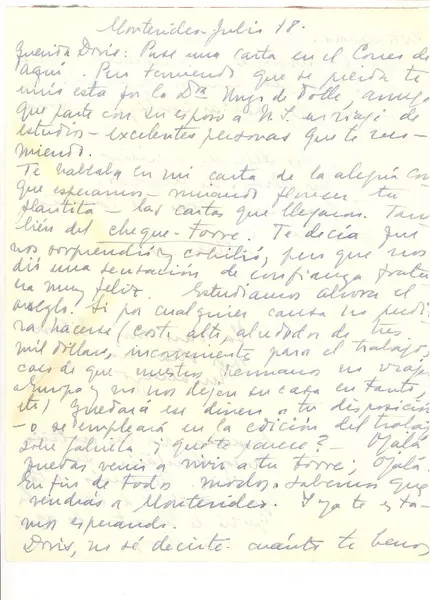 Montevideo Julio 18.
Querida Doris: Puse una carta en el Correo de
aquí. Pero temiendo que se pierda te
envío esta por la Dra. Hugo de Dolle, amiga
que parte con su esposo a N.Y. en viaje de
estudios - excelentes personas que te reco-
miendo.
Te hablaba en mi carta de la alegría con
que esperamos - mirando florecer tu
plantita - las cartas que llegaran. Tam
bién del cheque-torre. Te decía que
nos sorprendió y cohibió, pero que nos
dió una sensación de confianza frater
na muy feliz. Estudiamos ahora el
arreglo. Si por cualquier causa no pudie
ra hacerse (costo alto, alrededor de tres
mil dollars, inconveniente para el trabajo,
caso de que nuestros hermanos no viajen
a Europa y no nos dejen su casa en tanto,
etc) quedará ese dinero a tu disposición
- o se empleará en la edición del trabajo
sobre Gabriela ¿que te parece? - Ojalá
puedas venir a vivir a tu torre; Ojalá.
En fin de todos modos sabemos que
vendrás a Montevideo. Y ya te esta-
mos esperando.
Doris, no sé decirte cuánto te hemos